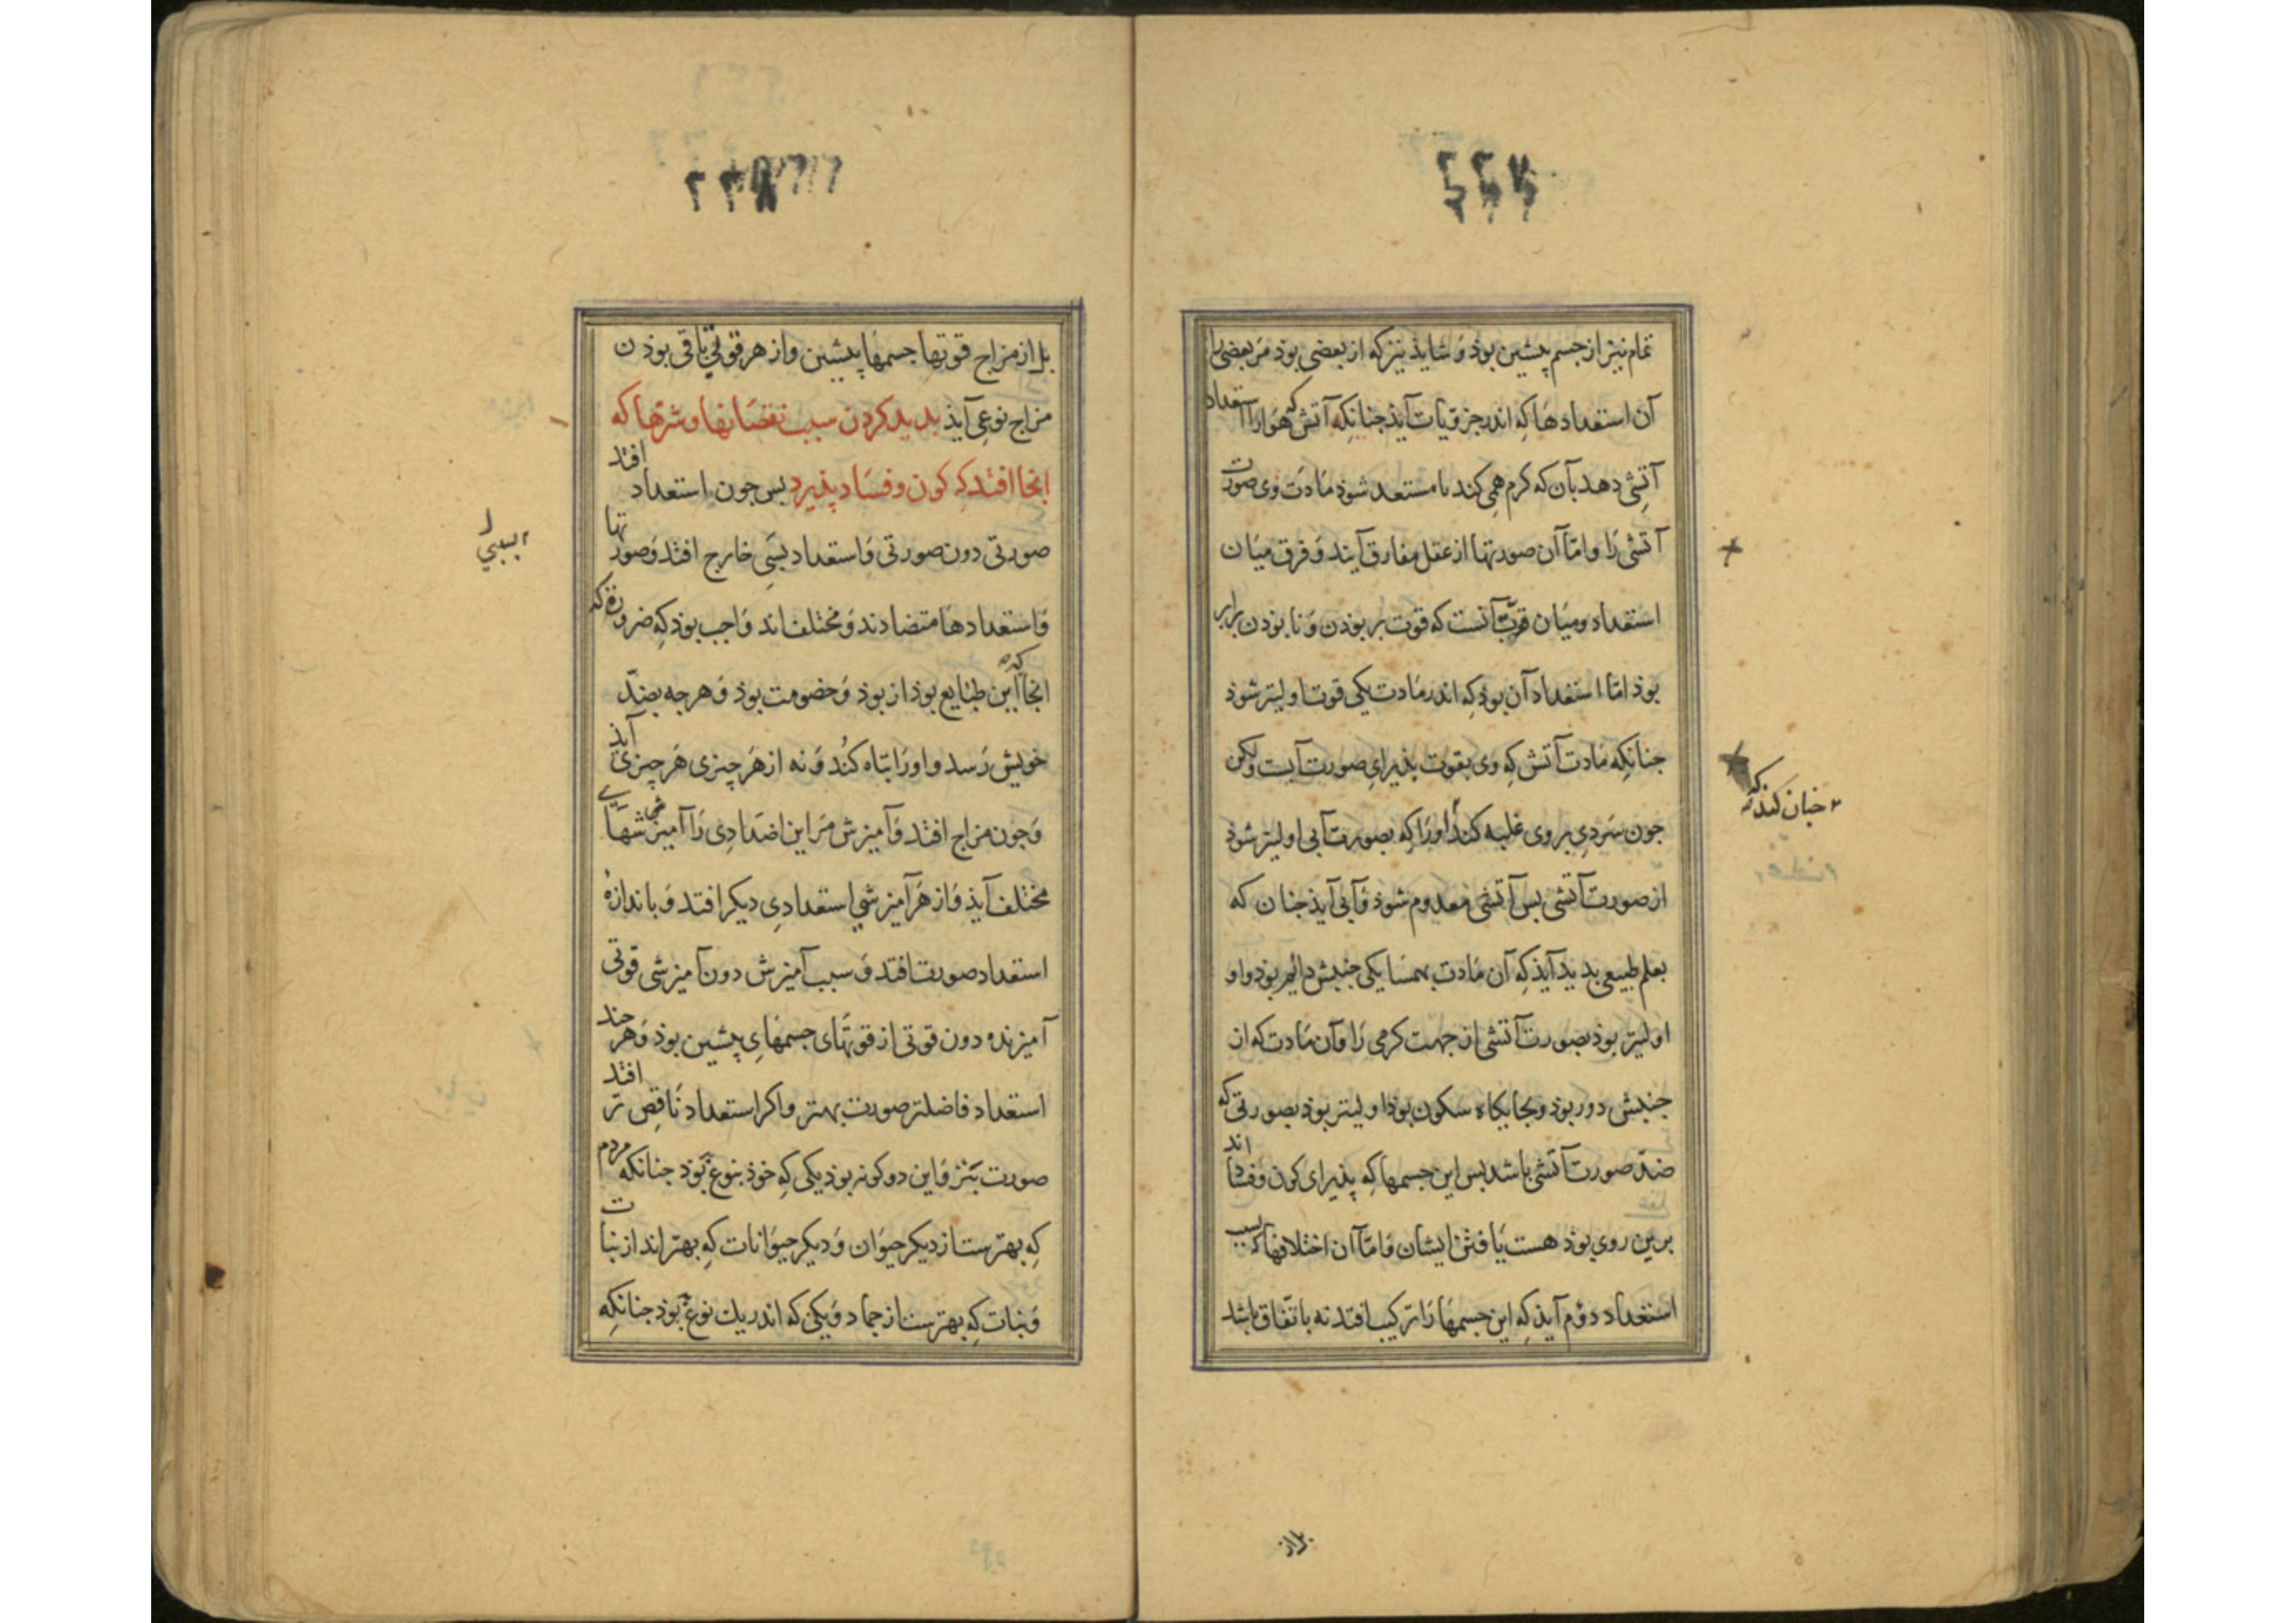 ۲۲۷
تمام نیز از جسم پیشین بوذ وَ شایذ نیز که از بعضی بوذ مَر بعضی را
آن استعداد هَا کِه اندر جزویات آیذ جنانکِه آتش که هَوا را استعداد
آتِشی دهد بآن که کرم همِی کند تا مستعد شوذ مَادَت وی صورت
آتشی رَا و امّا آن صورتها از عقل مفارق آیند وَ فرق میَان
استعداد و میَان قوّت آنست که قوت بر بوذن وَ نا بوذن برابر
بوذ امّا استعداد آن بوذ کِه اندر مَادت یکی قوت اولیتر شوذ
جنانکِه مَادت آتش کِه وَی بقوّت بذیرایِ صورت آبست ولکن
جون سَردیِ بر وی غلبه کند او رَا کِه بصورت آبی اولیتر شوذ
۲ جنان کند که
از صورت آتشی بس آتشی معدوم شوذ وَ آبی آیذ جنان که
بعلم طبیعی بدید آیذ کِه آن مَادت بهمسَایکی جنبش دائم بوذ و او
اولیتر بوذ بصورت آتشی از جهت کرمی رَا وَ آن مَادت که از
جنبش دور بوذ و بجایکاه سکون بوذ اولیتر بوذ بصورتی که
ضدّ صورت آتشی باشد بس این جسمها کِه پذیرای کون و فساد اند
برین روی بوذ هست یَافتن ایشان وَ امّا آن اختلافها که بسبب
استعداد دوّم آیذ کِه این جسمهَا رَا ترکیب افتد نه باتّفاق باشد
بل از
۲۲۸
بل از مزاج قوتهَا جسمهَا پیشین و از هر قوتی باقی بوذن
مزاج نوعِی آیذ بدید کردن سبب نقصَانها و شرّها که
اینجا افتد کِه کون و فسَاد پذیرد بس جون استعداد افتد
صورتی دون صورتی وَ استعداد بسَیی خارج افتد وَ صورتها
وَ استعداد هَا متضادند وَ مختلف اند وَ اجب بوذ کِه ضرورة که
اینجا که این طبَایع بوذ از بوذ وَ خصومت بوذ وَ هر جه بضدّ
خویش رَسد و او رَا تبَاه کُند وَ نه از هَر چیزی هَر چیزی آیذ
وَ جون مزاج افتد وَ آمیزش مَر این اضدادِی رَا آمیزشهَای
مختلف آیذ وَ از هَر آمیزشی استعدادِی دیکر افتد وَ باندازه
استعداد صورت افتد وَ سبب آمیزش دون آمیزشی قوتی
آمیزنده دون قوتی از قوتهَای جسمهَایِ پیشین بوذ وَ هر جند
استعداد فاضلتر صورت بهتر و اکر استعداد نَاقِص تر افتد
صورت بتَر وَ این دو کونه بوذ یکی کِه خوذ بنوع بَوذ جنانکه مردم
کِه بهترست از دیکر حیوَان وَ دیکر حیوَانات کِه بهتر اند از نبَات
وَ نبات کِه بهترست از جماد وَ یکی که اندر یك نوع بوذ جنانکِه